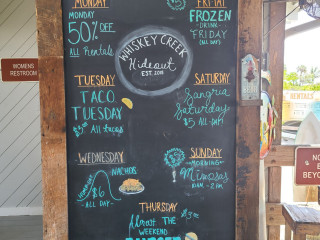 MONDAY
MONDAY
50% OFF
All Rentals
FRI DAY
FROZEN
DRINK
FRIDAY
(ALL DAY)
WHISKEY CREEK
Hideout
EST. 2018
WOMENS
RESTROOM
TUESDAY
TACO
TUESDAY
All tacos
SATURDAY
Sangria
SATURDAY
$5 ALL DAY
WEDNESDAY
$6
NACHOS
ALL DAY
SUNDAY
MORNING
Mimosas
10AM - 2PM
THURSDAY
Almost THE
WEEKEND
RENTALS